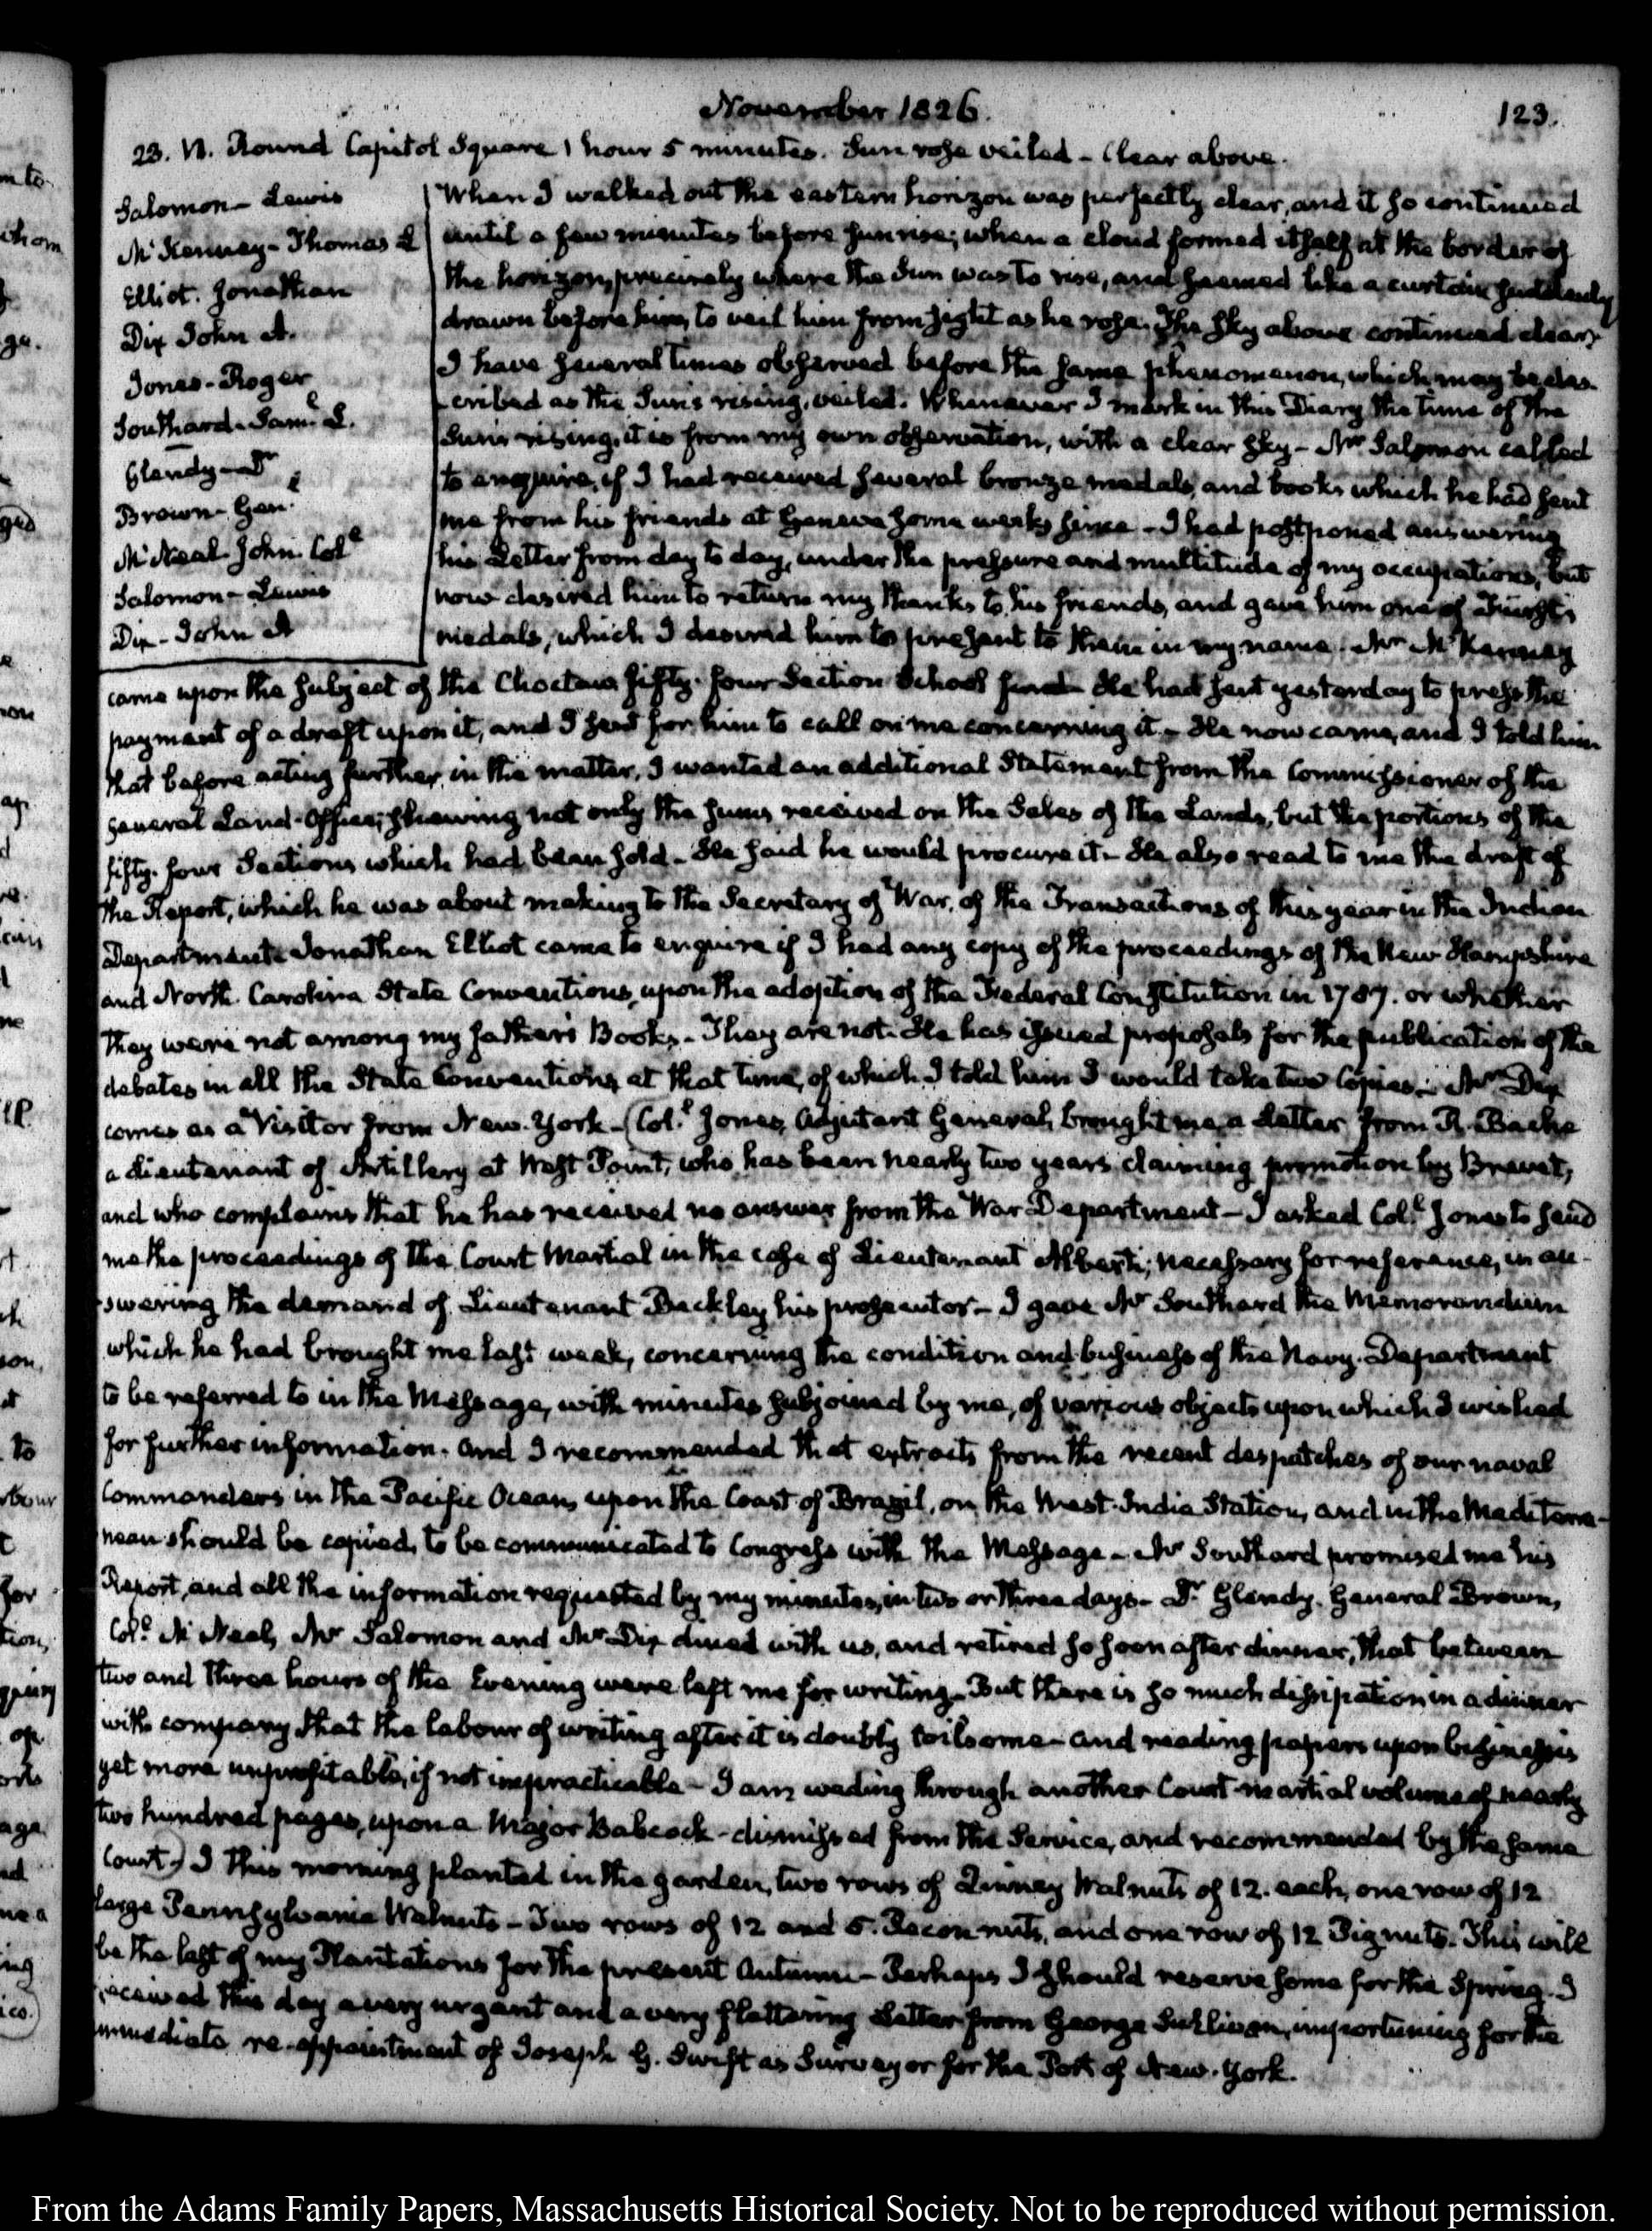 November 1826.
123.
23. VI. Round Capitol Square 1 hour 5 minutes. Sun rose veiled - Clear above.
Salomon - Lewis
McKenney - Thomas L
Elliot. Jonathan
Dix John A.
Jones - Roger
Southard. Saml. L.
Glendy - Dr
Brown - Genl.
McNeal John. Coll
Salomon - Lewis
Dix - John A
When I walked out the eastern horizon was perfectly clear, and it so continued
until a few minutes before sunrise; when a cloud formed itself at the border of
the horizon, precisely where the Sun was to rise, and seemed like a curtain suddenly
drawn before him, to veil him from sight as he rose. The sky above continued clear,
I have several times observed before the same phenomenon, which may be des-
cribed as the Sun's rising, veiled. Whenever I mark in this Diary the time of the
Sun's rising, it is from my own observation, with a clear sky - Mr Salomon called
to enquire, if I had received several bronze medals, and books which he had sent
me from his friends at Geneva some weeks since - I had postponed answering
his Letter from day to day, under the pressure and multitude of my occupations, but
now desired him to return my thanks to his friends, and gave him one of Fürst's
medals, which I desired him to present to them in my name. Mr McKenney
came upon the subject of the Choctaw fifty-four Section School fund - He had sent yesterday to press the
payment of a draft upon it, and I sent for him to call on me concerning it. - He now came, and I told him
that before acting further in the matter, I wanted an additional Statement from the Commissioner of the
General Land-Office; shewing not only the sums received on the Sales of the Lands, but the portions of the
fifty-four Sections which had been sold - He said he would procure it - He also read to me the draft of
the Report, which he was about making to the Secretary of War, of the Transactions of this year in the Indian
Department - Jonathan Elliot came to enquire if I had any copy of the proceedings of the New Hampshire
and North. Carolina State Conventions, upon the adoption of the Federal Constitution in 1787. or whether
they were not among my father's Books - They are not. He has issued proposals for the publication of the
debates in all the State Conventions, at that time, of which I told him I would take two Copies. - Mr Dix
comes as a Visitor from New-York - (Coll. Jones, Adjutant General, brought me, a Letter from R. Bache
a Lieutenant of Artillery at West Point, who has been nearly two years claiming promotion by Brevet,
and who complains that he has received no answer from the War Department - I asked Coll. Jones to send
me the proceedings of the Court Martial in the case of Lieutenant Alberti; necessary for reference, in an-
swering the demand of Lieutenant Beckley his prosecutor - I gave Mr Southard the Memorandum
which he had brought me last week, concerning the condition and business of the Navy. Department
to be referred to in the Message, with minutes subjoined by me, of various objects upon which I wished
for further information. And I recommended that extracts from the recent despatches of our naval
Commanders in the Pacific Ocean, upon the Coast of Brazil, on the West-India Station, and in the Mediterra-
nean should be copied, to be communicated to Congress with the Message - Mr Southard promised me his
Report, and all the information requested by my minutes, in two or three days - Dr. Glendy. General Brown,
Coll. McNeal, Mr Salomon and Mr Dix dined with us, and retired so soon after dinner, that between
two and three hours of the Evening were left me for writing - But there is so much dissipation in a dinner
with company that the labour of writing after it is doubly toilsome - and reading papers upon business is
yet more unprofitable, if not impracticable - I am wading through another Court-martial volume of nearly
two hundred pages, upon a Major Babcock - dismissed from the Service, and recommended by the same
Court.) I this morning planted in the garden, two rows of Quincy Walnuts of 12. each, one row of 12
large Pennsylvania Walnuts - Two rows of 12 and 5. Pecon nuts, and one row of 12 Pignuts. This will
be the last of my Plantations for the present Autumn - Perhaps I should reserve some for the Spring. I
received this day a very urgent and a very flattering Letter from George Sullivan, importuning for the
immediate re-appointment of Joseph G. Swift as Surveyor for the Port of New-York.
From the Adams Family Papers, Massachusetts Historical Society. Not to be reproduced without permission.